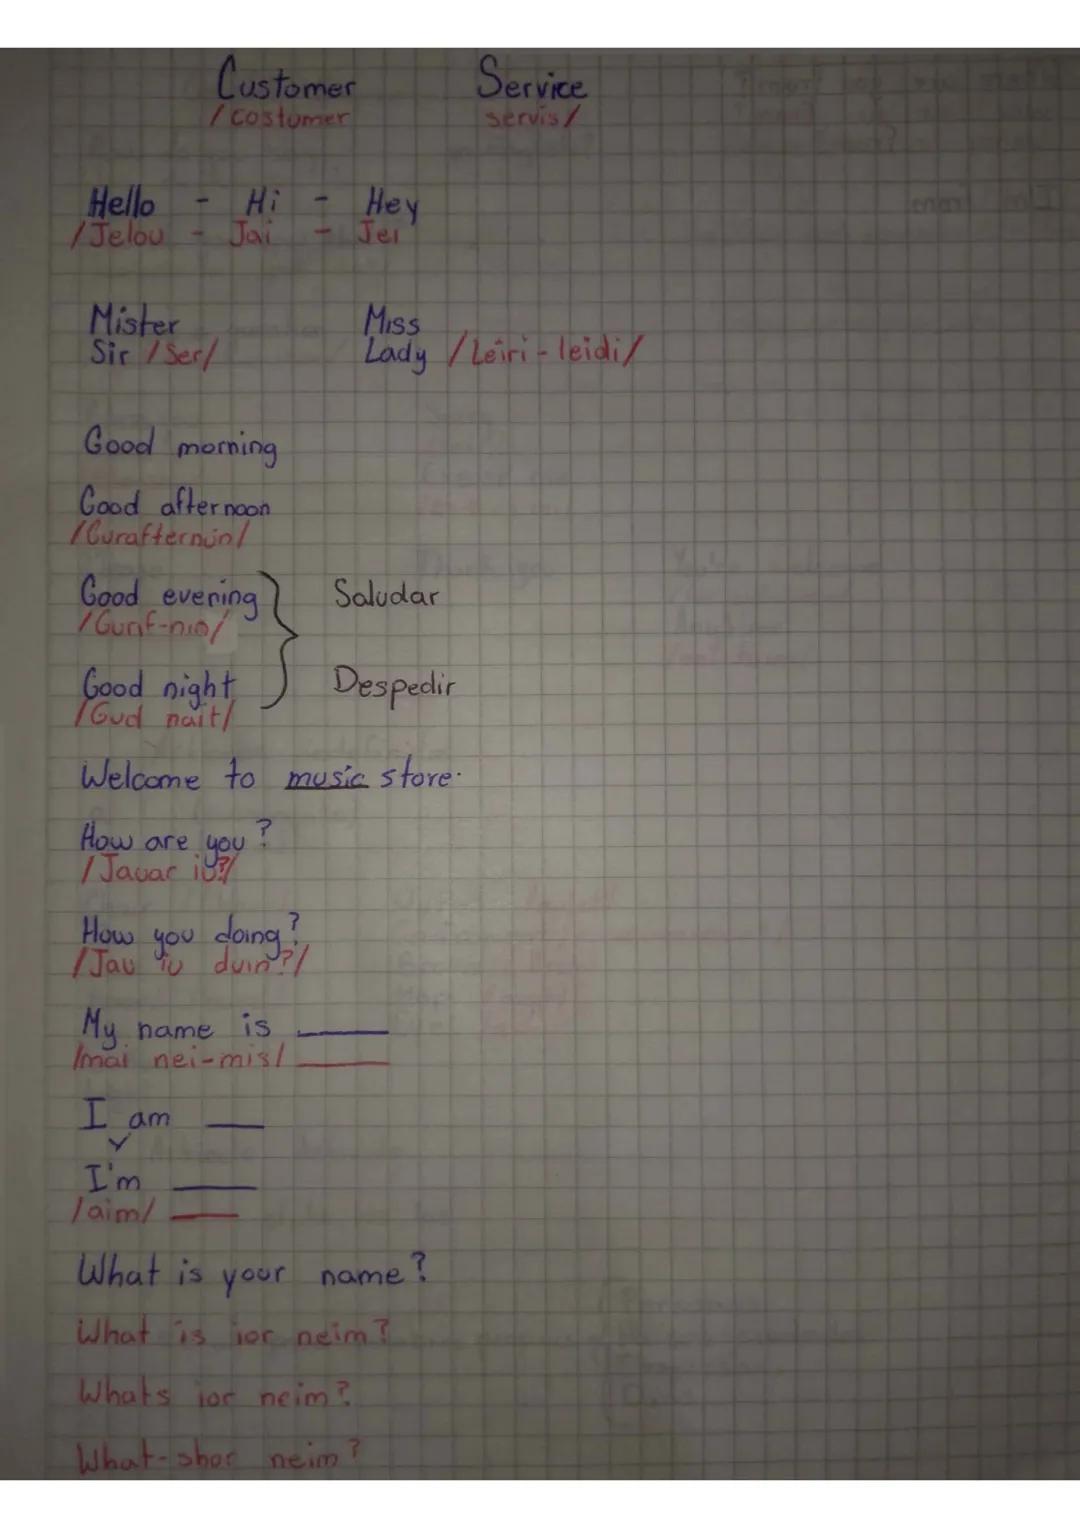 Customer Service
/costumer servis/
Hello - Hi - Hey
/Jelou - Jai - Jei
Mister Miss
Sir /Ser/ Lady /Leiri - leidi/
Good morning
Good afternoon
/Gurafternún/
Good evening Saludar
Good night Despedir
/Gud nait/
Welcome to music store.
How are you?
/Jauar iu?/
How you doing?
/Jau iu duin?/
My name is
/mai nei-mis/
I am
I'm
/aim/
What is your name?
What is ior neim?
Whats ior neim?
What-shor neim?